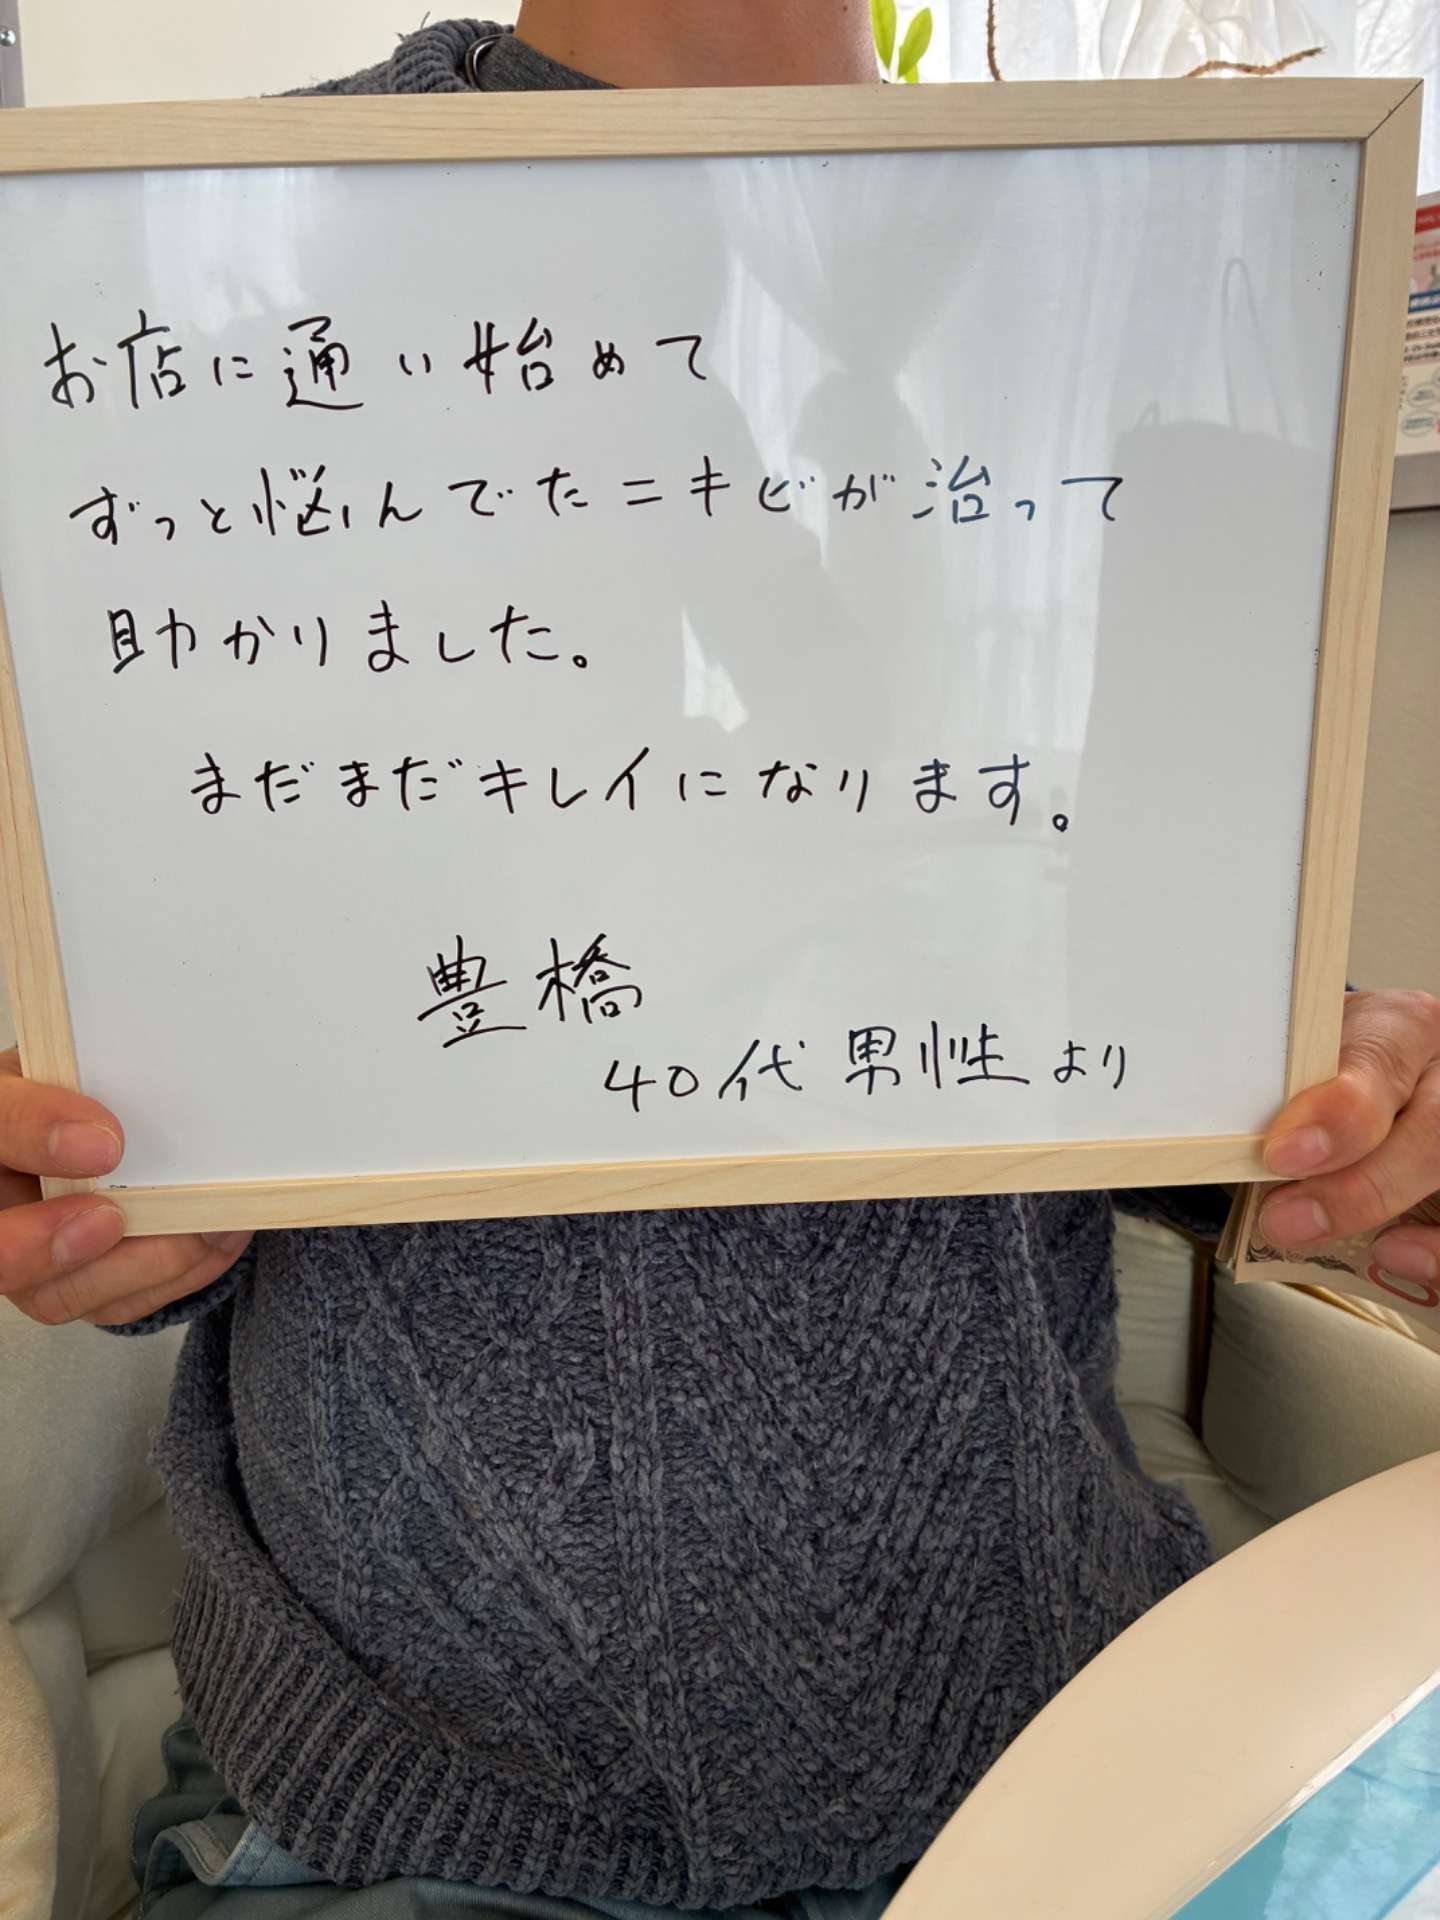 お店に通い始めて
ずっと悩んでたニキビが治って
助かりました。
まだまだキレイになります。
豊橋
40代男性より